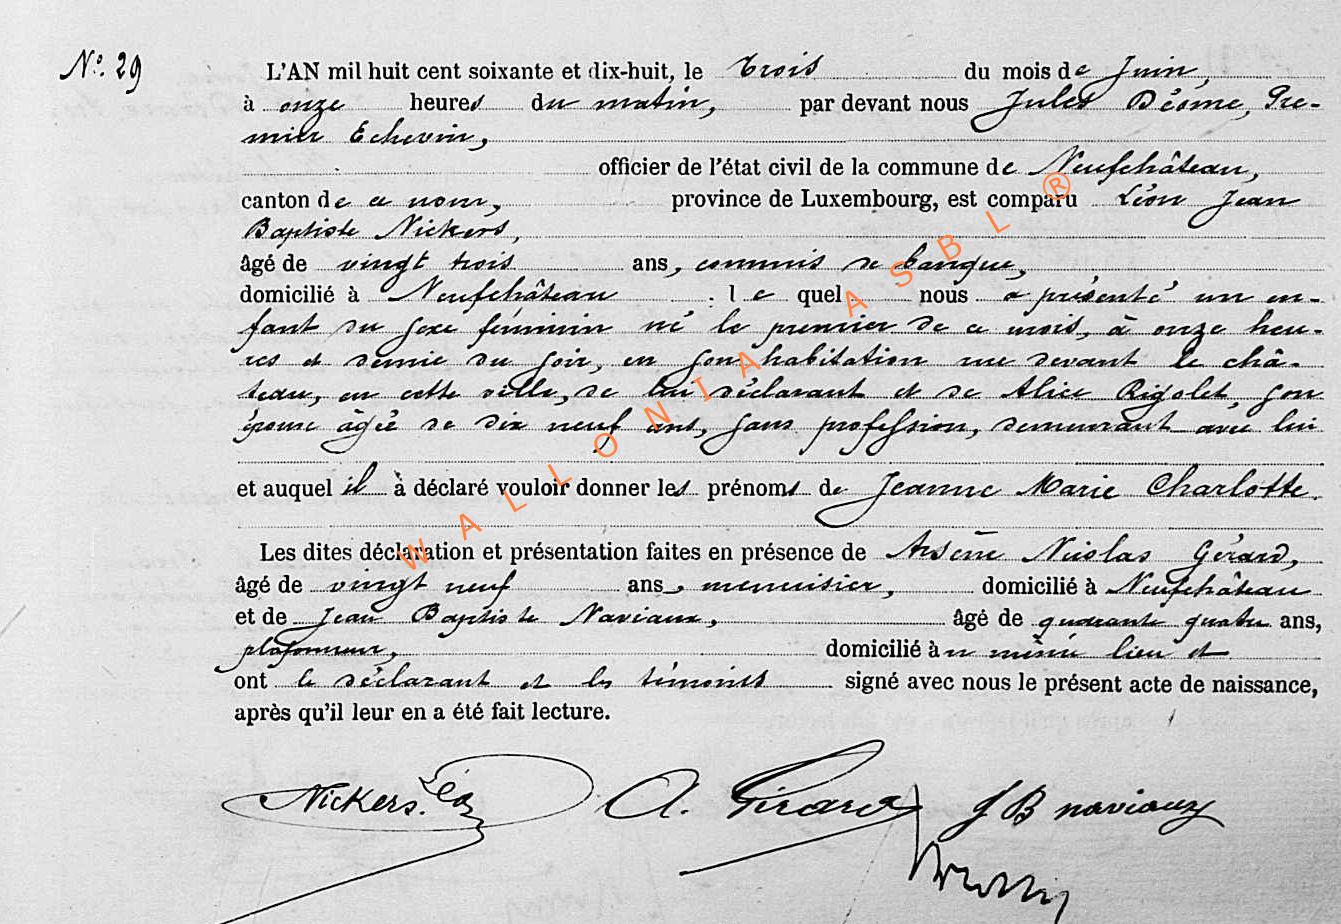 N.º 29
L'AN mil huit cent soixante et dix-huit, le trois du mois de Juin,
à onze heures du matin, par devant nous Jules Pre-
mier Echevin,
officier de l'état civil de la commune de Neufchâteau,
canton de ce nom, province de Luxembourg, est comparu Léon Jean
Baptiste Nickers,
âgé de vingt trois ans, commis de banque,
domicilié à Neufchâteau : lequel nous a présenté un en-
fant du sexe féminin né le premier de ce mois, à onze heu-
res et demie du soir, en son habitation rue devant le châ-
teau, en cette ville, de lui déclarant et de Alice Rigolet, son
épouse âgée de dix neuf ans, sans profession, demeurant avec lui
et auquel il a déclaré vouloir donner les prénoms de Jeanne Marie Charlotte.
Les dites déclaration et présentation faites en présence de Arsène Nicolas Gérard,
âgé de vingt neuf ans, menuisier, domicilié à Neufchâteau
et de Jean Baptiste Naviaux, âgé de quarante quatre ans,
plafonneur, domicilié à même lieu et
ont le déclarant et les témoins signé avec nous le présent acte de naissance,
après qu'il leur en a été fait lecture.
Nickers. Léon A. Girard J B naviaux
WALLONIA ASBL ®